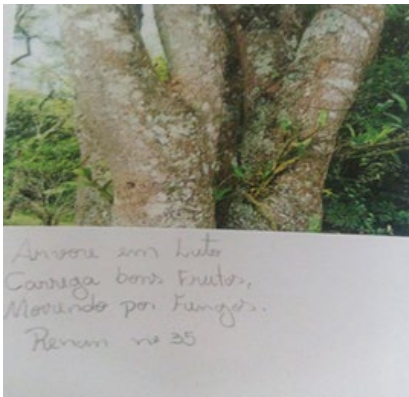 Arvore em Luto
Carrega bons Frutos,
Morrendo por Fungos.
Renan nº 35